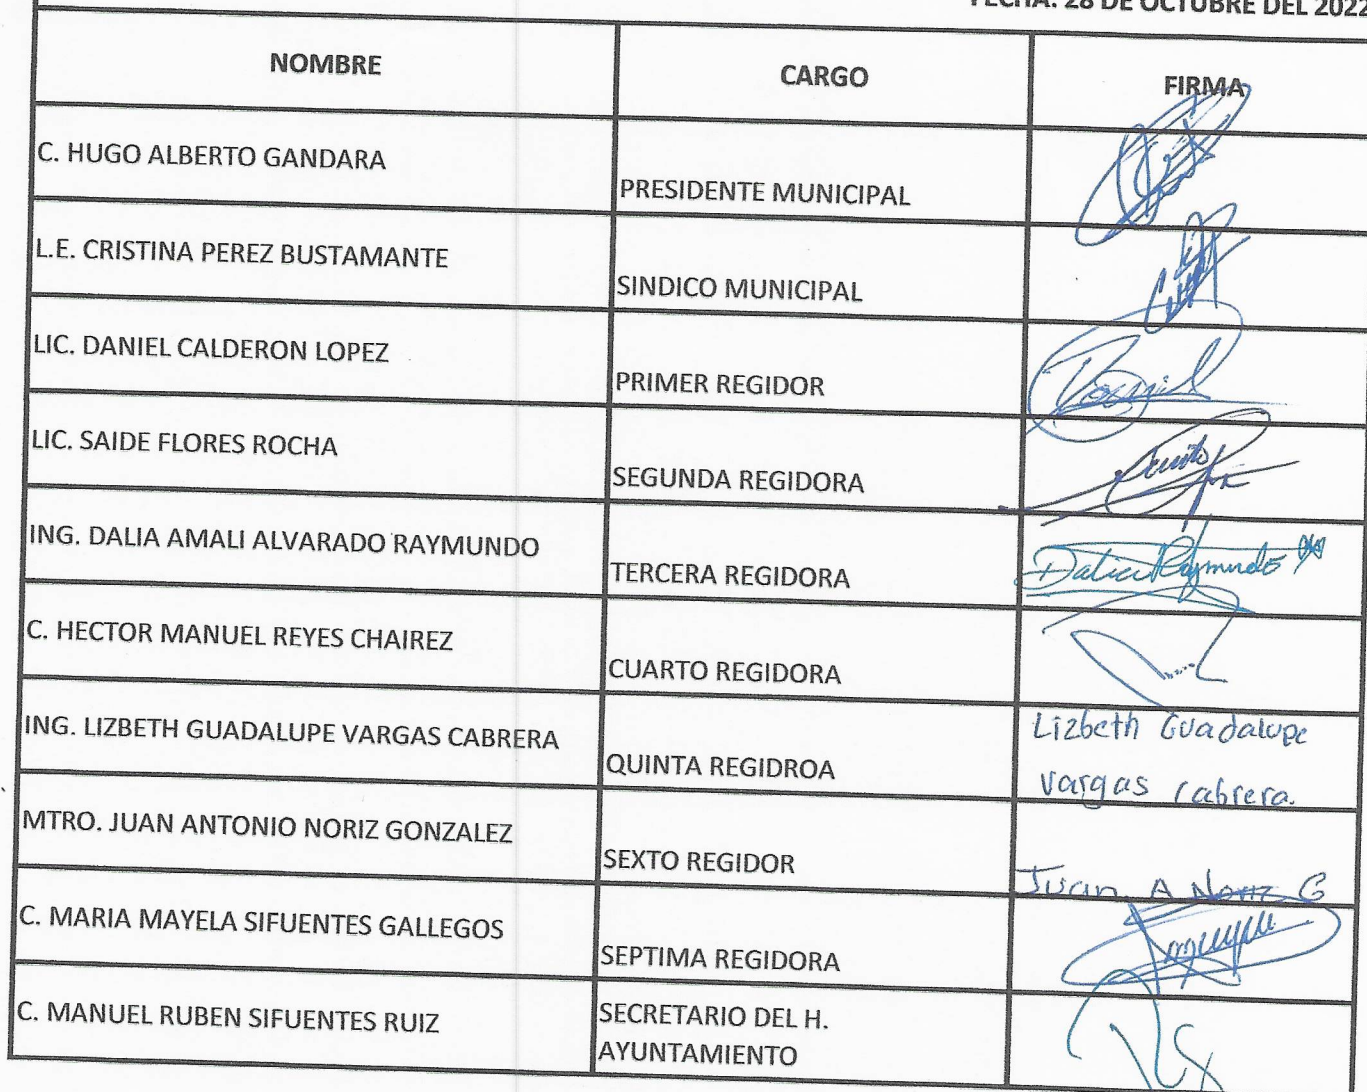 FECHA: 28 DE OCTUBRE DEL 2022
NOMBRE CARGO FIRMA
C. HUGO ALBERTO GANDARA PRESIDENTE MUNICIPAL
L.E. CRISTINA PEREZ BUSTAMANTE SINDICO MUNICIPAL
LIC. DANIEL CALDERON LOPEZ PRIMER REGIDOR Daniel
LIC. SAIDE FLORES ROCHA SEGUNDA REGIDORA
ING. DALIA AMALI ALVARADO RAYMUNDO TERCERA REGIDORA Dalia Raymundo
C. HECTOR MANUEL REYES CHAIREZ CUARTO REGIDORA
ING. LIZBETH GUADALUPE VARGAS CABRERA QUINTA REGIDROA Lizbeth Guadalupe
Vargas Cabrera.
MTRO. JUAN ANTONIO NORIZ GONZALEZ SEXTO REGIDOR Juan A Noriz G
C. MARIA MAYELA SIFUENTES GALLEGOS SEPTIMA REGIDORA
C. MANUEL RUBEN SIFUENTES RUIZ SECRETARIO DEL H.
AYUNTAMIENTO